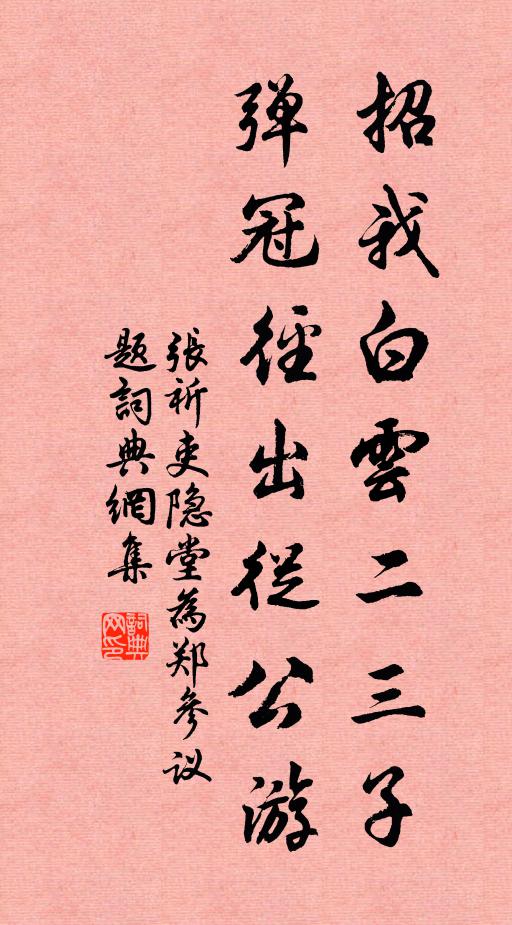 招我白雲二三子
弹冠径出從公游
張祈吏隐堂為郑参议
题詞典網集
詞典网印